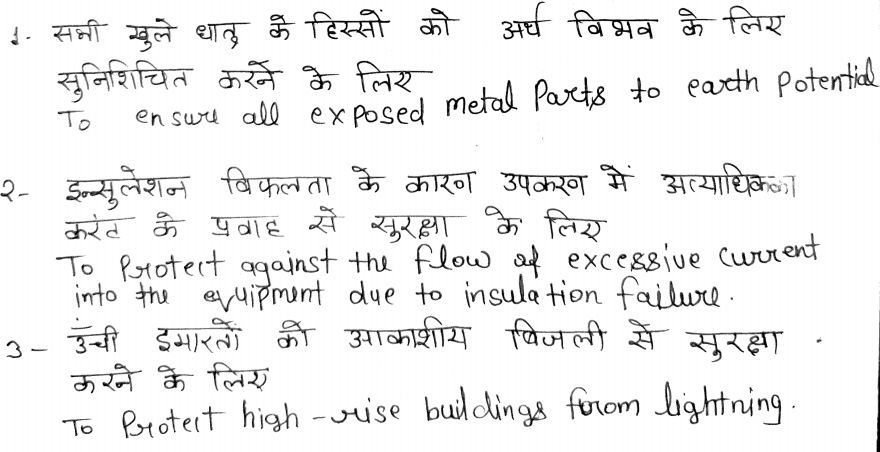 1. सभी खुले धातु के हिस्सों को अर्थ विभव के लिए
सुनिशिचित करने के लिए
To ensure all exposed metal Parts to earth Potential
2- इन्सुलेशन विफलता के कारण उपकरण में अत्याधिक
करंट के प्रवाह से सुरक्षा के लिए
To Protect against the flow of excessive current
into the equipment due to insulation failure.
3- उँची इमारतों को आकाशीय बिजली से सुरक्षा
करने के लिए
To Protect high-rise buildings from lightning.